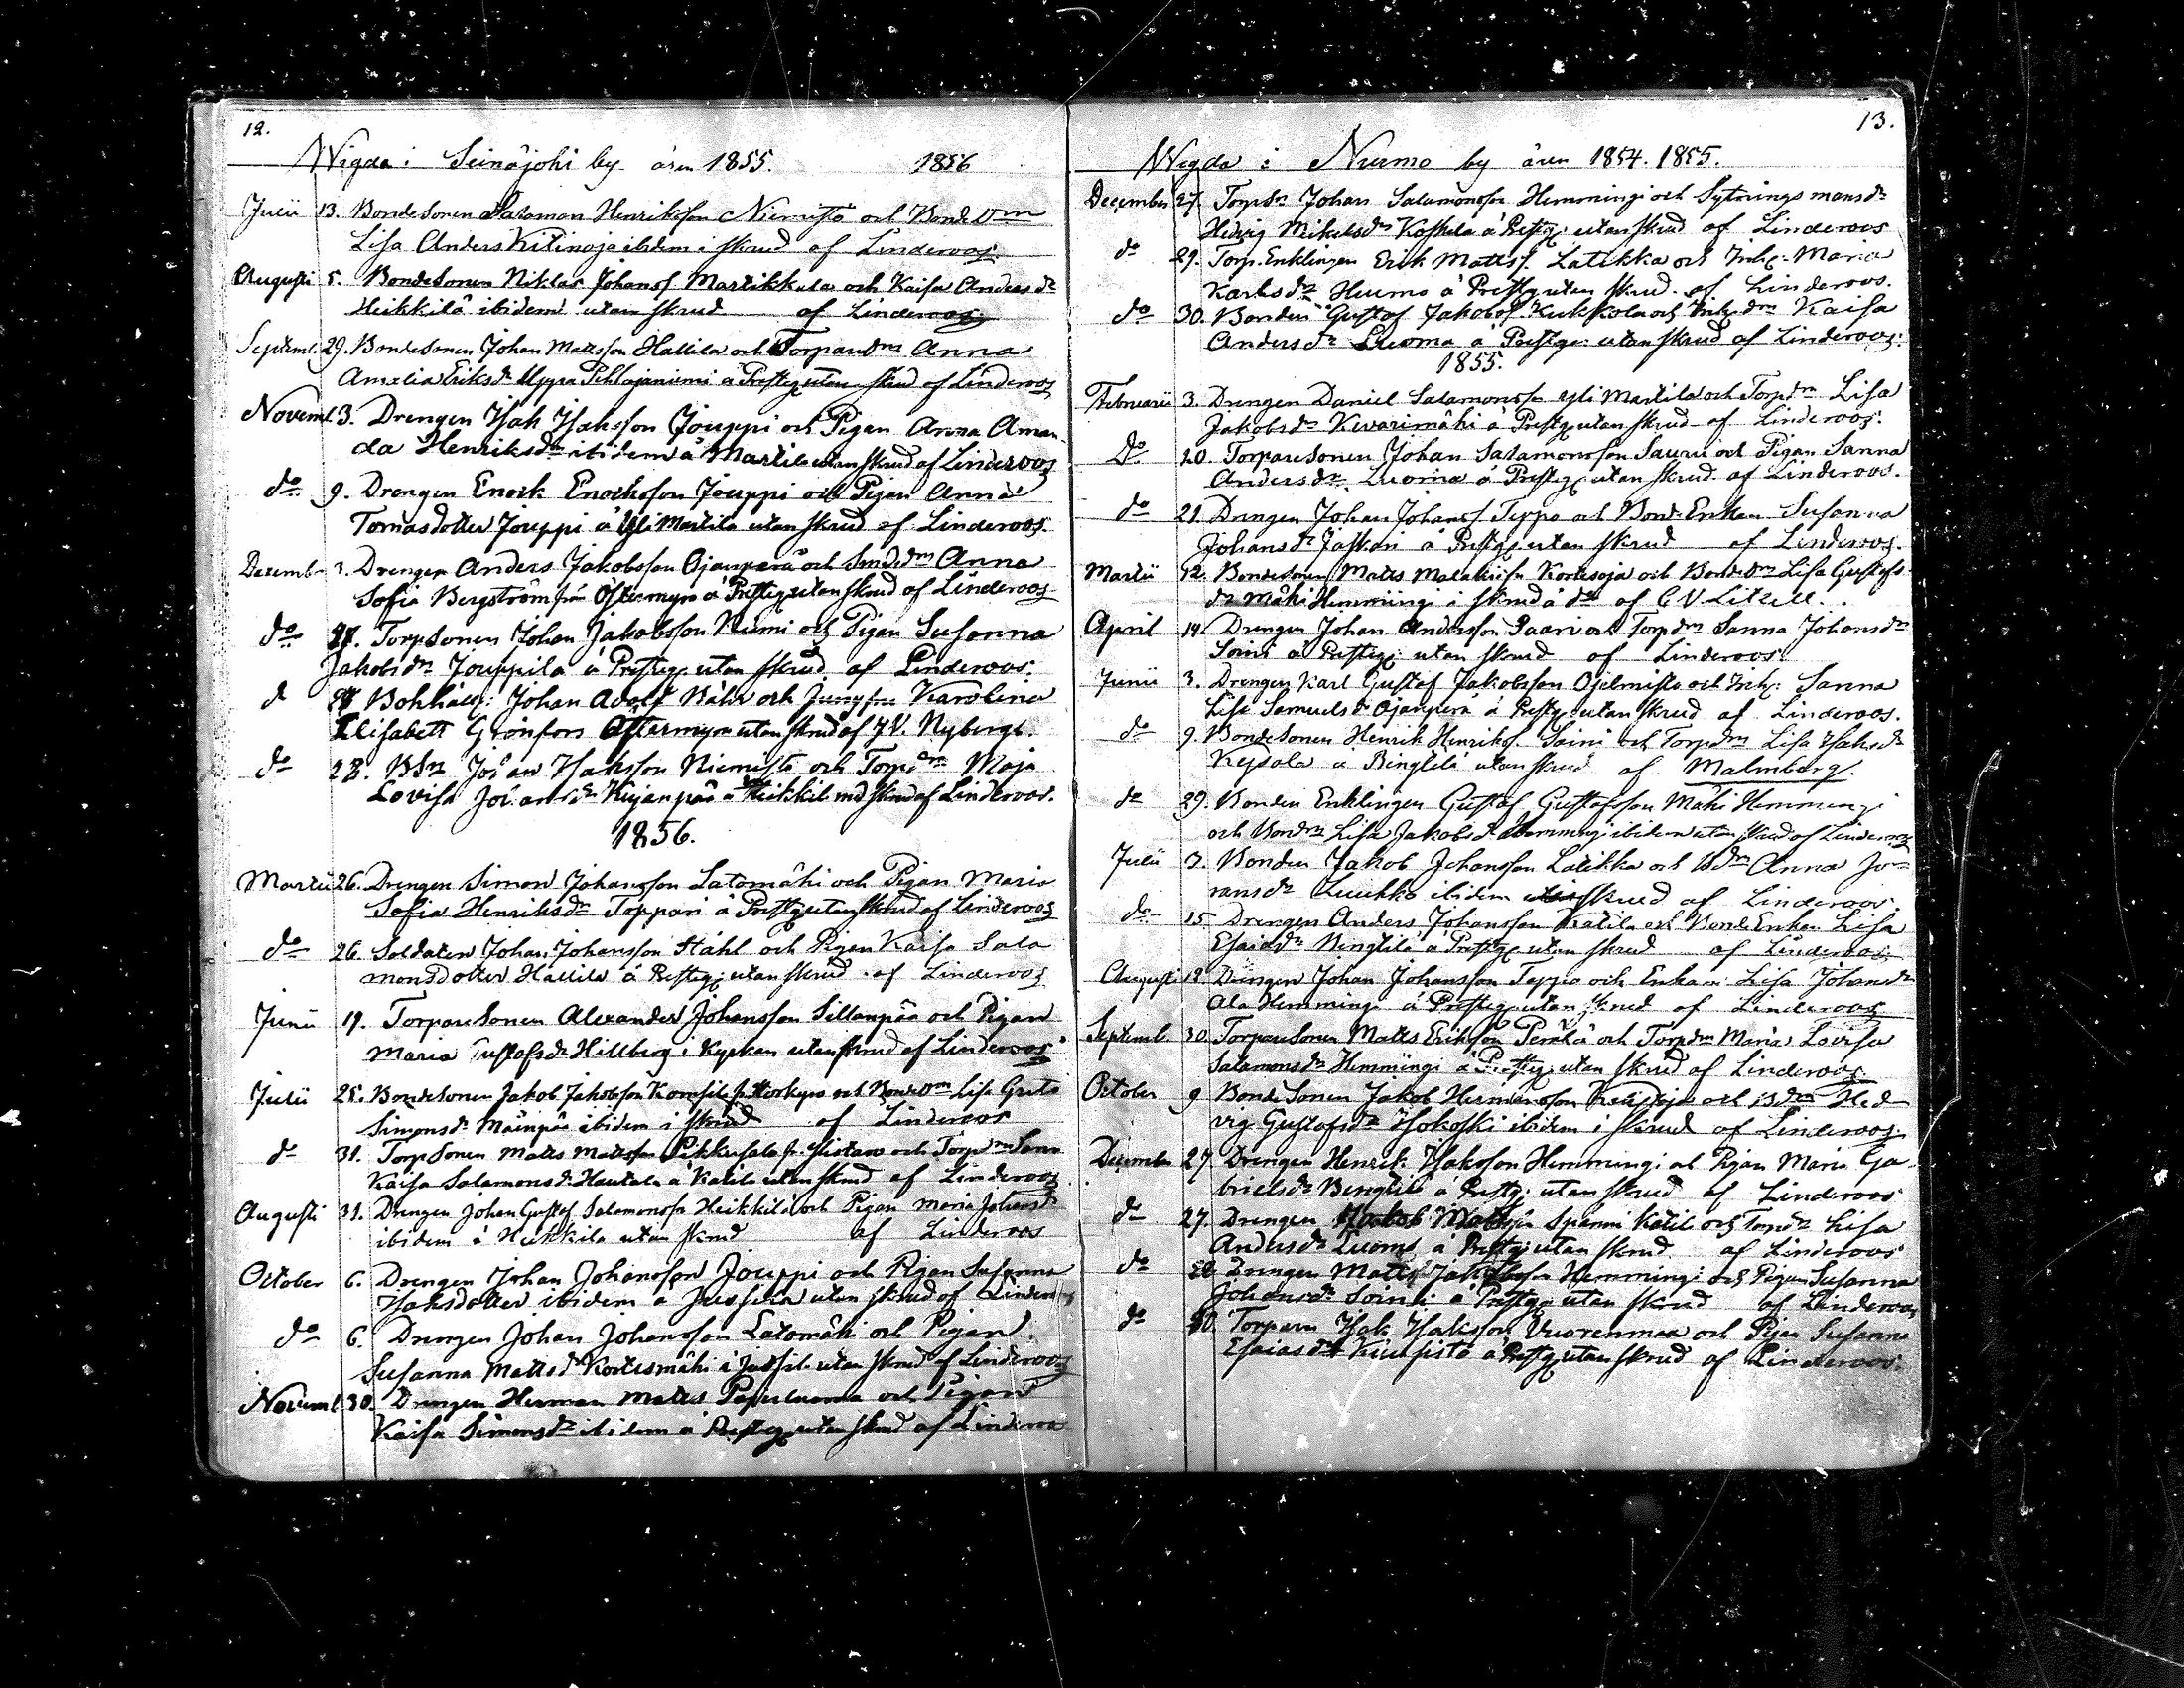 12.
Wigda i Seinäjoki by åren 1855. 1856
Julii 13. Bondesonen Salomon Henriksson Niemistö och Bondedrn
Lisa Anders Kitinoja ibidem i skrud af Linderoos.
Augusti 5. Bondesonen Niklas Johans. Martikkala och Kaisa Andersdr
Heikkilä ibidem utan skrud af Linderoos
Septemb. 29. Bondesonen Johan Mattsson Hallila och Torparedrn Anna
Amalia Eriksdr Uppa Pihlajaniemi å Prestg. utan skrud af Linderoos
Novemb. 3. Drengen Isak Isaksson Jouppi och Pigan Anna Aman
da Henriksdr ibidem å Martila utan skrud af Linderoos
do 9. Drengen Enock Enochsson Jouppi och Pigan Anna
Tomasdotter Jouppi å Yli Martila utan skrud af Linderoos.
Decemb. 3. Drengen Anders Jakobsson Ojanperä och Smedsdrn Anna
Sofia Bergström frå Östermyra å Prestg. utan skrud af Linderoos
do 27. Torpsonen Johan Jakobsson Niemi och Pigan Susanna
Jakobsdr Jouppila å Prestg. utan skrud af Linderoos.
d Bokhåll: Johan Adolf och Jungfru Karolina
Elisabett Grönfors Östermyra utan skrud af Nybergh.
do 28. Bdsn Johan Isaksson Niemistö och Torpdrn Maja
Lovisa Johansdr Kujanpää å Heikkil med skrud af Linderoos.
1856.
Martii 26. Drengen Simon Johansson Latomäki och Pigan Maria
Sofia Henriksdr Toppari å Prestg. utan skrud af Linderoos
do 26. Soldaten Johan Johansson Ståhl och Pigan Kaisa Salo
monsdotter Hallila å Prestg. utan skrud af Linderoos
Junii 19. Torparesonen Alexander Johansson Sillanpää och Pigan
Maria Gustafsdr Hillberg i Kyrkan utan skrud af Linderoos
Julii 25. Bondesonen Jakob Jakobsson fr. Storkyro och Bondedrn Lisa Greta
Simonsdr Mäenpää ibidem i skrud af Linderoos
do 31. Torpsonen Matts Mattsson Pikkusalo fr. Ylistaro och Torpdrn Sanna
Kaisa Salomonsdr Hautala å Katila utan skrud af Linderoos
Augusti 31. Drengen Johan Gustaf Salomonsson Heikkilä och Pigan Maria Johansdr
ibidem å Heikkila utan skrud af Linderoos
October 6. Drengen Johan Johansson Jouppi och Pigan Susanna
Isaksdotter ibidem å utan skrud af Linderoos
do 6. Drengen Johan Johansson Latomäki och Pigan
Susanna Mattsdr Kortesmäki utan skrud af Linderoos
Novemb. 30. Drengen Herman Matts Pajuluoma och Pigan
Kaisa Simonsdr ibidem å Prestg. utan skrud af Linderoos
13.
Wigda i Nurmo by åren 1854. 1855.
December 27. Torpsn Johan Salomonsson Hemmingi och Sytningsmansdr
Hedvig Mikelsdr Koskela å Prestg. utan skrud af Linderoos
do 29. Torp. Enklingen Erik Mattss. Latikka och Inh: Maria
Karlsdr Hurmo å Prestg. utan skrud af Linderoos.
do 30. Bonden Gustaf Jakobss. Kukkola och Inh. drn Kaisa
Andersdr Luoma å Prestg. utan skrud af Linderoos.
1855.
Februarii 3. Drengen Daniel Salomonss. Yli Martila och Torpdrn Lisa
Jakobsdr Kivarimäki å Prestg. utan skrud af Linderoos.
Do 20. Torparesonen Johan Salomonsson Sauru och Pigan Sanna
Andersdr Luoma å Prestg. utan skrud af Linderoos.
do 21. Drengen Johan Johanss. Teppo och Bonde Enkan Susanna
Johansdr Jaskari å Prestg. utan skrud af Linderoos.
Martii 12. Bondesonen Matts Malakiess. Kortesoja och Bondedrn Lisa Gustafs
dr Mäki Hemmingi i skrud å do af C V Litzell.
April 14. Drengen Johan Andersson Saari och Torpdrn Sanna Johansdr
Soini å Prestg. utan skrud af Linderoos.
Junii 3. Drengen Karl Gustaf Jakobsson Ojelmisto och Inh: Sanna
Lisa Samuelsdr Ojanperä å Prestg. utan skrud af Linderoos.
do 9. Bondesonen Henrik Henrikss. Soini och Torpdrn Lisa Isaksdr
Kepsola å Benglilä utan skrud af Malmberg.
do 29. Bonden Enklingen Gustaf Gustafsson Mäki Hemmingi
och Bondrn Lisa Jakobsdr Hemmingi ibidem utan skrud af Linderoos
Julii 3. Bonden Jakob Johansson Latikka och Bdrn Anna Jo-
hansdr Luukko ibidem utan skrud af Linderoos.
do 15. Drengen Anders Johansson Katila och Bonde Enkan Lisa
Esaiedr Benglilä å Prestg. utan skrud af Linderoos.
Augusti 12. Drengen Johan Johansson Teppo och Enkan Lisa Johansdr
Ala Hemmingi å Prestg. utan skrud af Linderoos
Septemb. 30. Torparesonen Matts Eriksson Perälä och Torpdrn Maria Lovisa
Salomonsdr Hemmingi å Prestg. utan skrud af Linderoos.
October 9. Bondesonen Jakob Hermansson och Bdrn Hed-
vig Gustafsdr Isokoski ibidem i skrud af Linderoos.
December 27. Drengen Henrik Isaksson Hemmingi och Pigan Maria Ga-
brielsdr Benglilä å Prestg. utan skrud af Linderoos
do 27. Drengen Jakob Mattsson Spanni Katil och Torpdr Lisa
Andersdr Luoma å Prestg. utan skrud af Linderoos
do 28. Drengen Matts Jakobsson Hemmingi och Pigan Susanna
Johansdr Soini å Prestg. utan skrud af Linderoos
do 30. Torparn Isak Isaksson Vuorenmaa och Pigan Susanna
Esaiasdr Kiuisistö å Prestg. utan skrud af Linderoos.